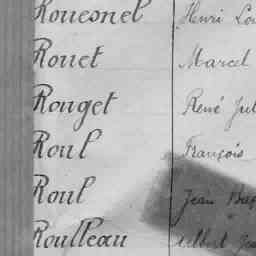 Rouesnel Henri Lou
Rouet Marcel
Rouget René Jul
Roul François
Roul Jean Bap
Roulleau Albert Je